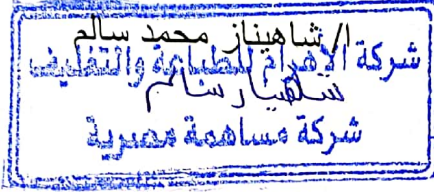 ا/ شاهيناز محمد سالم
شركة الاهرام للطباعة والتغليف
شاهيناز سالم
شركة مساهمة مصرية